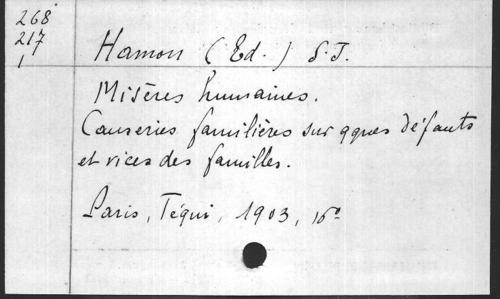 268
217
1
Hamon (Ed.) S.J.
Misères humaines.
Causeries familières sur qques défauts
et vices des familles.
Paris, Téqui, 1903, 16°